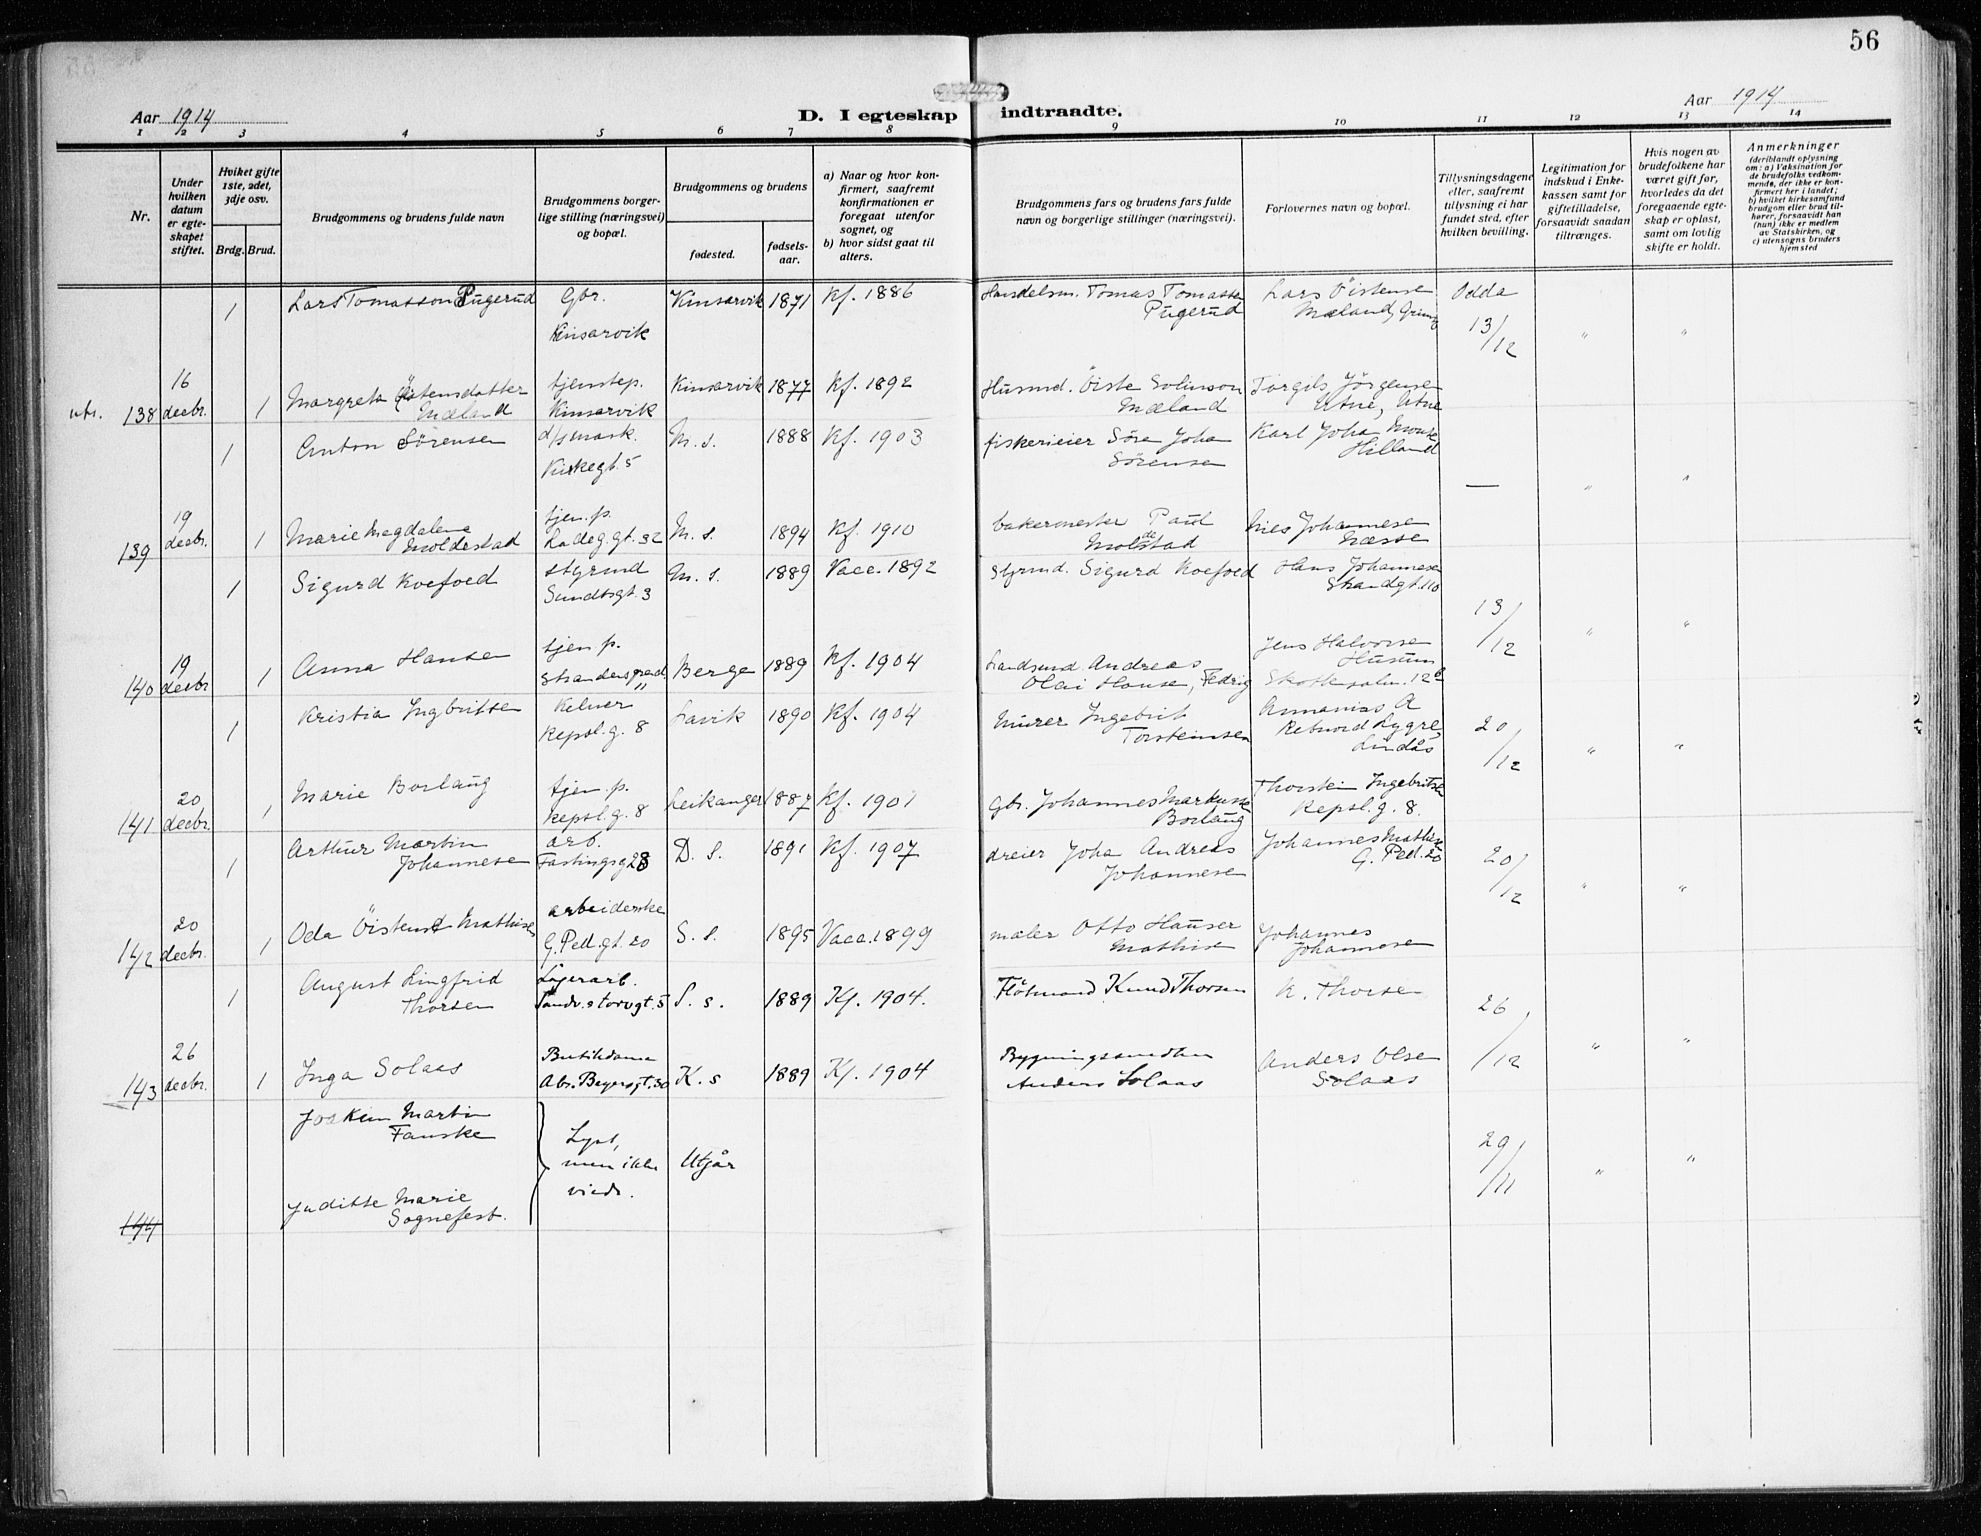 56
Aar 1914
D. I egteskap indtraadte.
Aar 1914
1 2 3 4 5 6 7 8 9 10 11 12 13 14
Nr.
Under
hvilken
datum
er egte-
skapet
stiftet.
Hvilket gifte
1ste, 2det,
3dje osv.
Brdg. Brud.
Brudgommens og brudens fulde navn
Brudgommens borger-
lige stilling (næringsvei)
og bopæl.
Brudgommens og brudens
fødested.
fødsels-
aar.
a) Naar og hvor kon-
firmert, saafremt
konfirmationen er
foregaat utenfor
sognet, og
b) hvor sidst gaat til
alters.
Brudgommens fars og brudens fars fulde
navn og borgerlige stillinger (næringsvei).
Forlovernes navn og bopæl.
Tillysningsdagene
eller, saafremt
tillysning ei har
fundet sted, efter
hvilken bevilling.
Legitimation for
indskud i Enke-
kassen samt for
giftetilladelse,
forsaavidt saadan
tiltrænges.
Hvis nogen av
brudefolkene har
været gift før,
hvorledes da det
foregaaende egte-
skap er opløst,
samt om lovlig
skifte er holdt.
Anmerkninger
(deriblandt oplysning
om: a) Vaksination for
de brudefolks vedkom-
mende, der ikke er kon-
firmert her i landet;
b) hvilket kirkesamfund
brudgom eller brud til-
hører, forsaavidt han
(hun) ikke er medlem
av Statskirken, og
c) utensogns bruders
hjemsted
1 Lars Tomasson Pugerud Gbr. Kinsarvik 1871 Kf. 1886 Handelsm. Tomas Tomassen Lars Öistensen Odda
Kinsarvik Pugerud Mæland, Grimo 13/12 " "
utr. 138 16 decbr. 1 Margreta Östensdatter tjenstep. Kinsarvik 1877 Kf. 1892 Husmd. Öiste Torgils Jörgensen
Mæland Kinsarvik Mæland Utne, Utne
1 Anton Sørensen M. s. 1888 Kf. 1903 fiskerieier Søre Joha Karl Joha Monse
Kirkegt. 5 Sørensen Hilland
— " "
139 19 decbr. 1 Marie Magdalene tjen. p. M. s. 1894 Kf. 1910 bakermester Paul Nils Johannesen
Moldestad Ladeg.gt. 32 Moldestad Næsse
1 Sigurd Koefoed styrmd M. s. 1889 Vacc. 1892 Styrmd. Sigurd Koefoed Hans Johannesen
Sundtsgt. 3 Strandgt. 110
13/12 " "
140 19 decbr 1 Anna Hansen tjen p. Bergen 1889 Kf. 1904 Andreas Jens Halvorsen
Olai Hansen, Husum
1 Kristia Ingbritsen Kelner Lavik 1890 Kf. 1904 Murer Ingebrit Ananias A
Repsl.g. 8 Torsteinsen Lygre, 20/12 " "
Lindås
141 20 decbr. 1 Marie Borlaug tjen. p. Leikanger 1887 Kf. 1901 Gbr. Johannes Markusse Thorstein Ingebritsen
Repsl. g. 8 Borlaug Repsl. g. 8.
1 Arthur Martin arb. D. s. 1891 Kf. 1907 dreier Joha Andreas Johannes Mathisen
Johannesen Fastingsg 28 Johannesen G. Ped. 20 20/12 " "
142 20 decbr. 1 Oda Öistens Mathisen arbeiderske S. s. 1895 Vacc. 1899 maler Otto Johannes
G. Ped. gt. 20 Mathisen Johannesen
1 August Lingfrid Lagerarb. S. s. 1889 Kf. 1904. Flötmand Knud Thorsen K. Thorsen
Thorsen Sandv. storvgt. 5 26/12 " "
143 26 decbr. 1 Inga Solaas Butikdame K. s 1889 Kf. 1904 Anders Olsen
Anders Solaas Solaas
Joakim Martin
Fanske
Lyst,
men ikke
viede.
Utgår 29/11 " "
144 Juditte Marie
Sognefest.